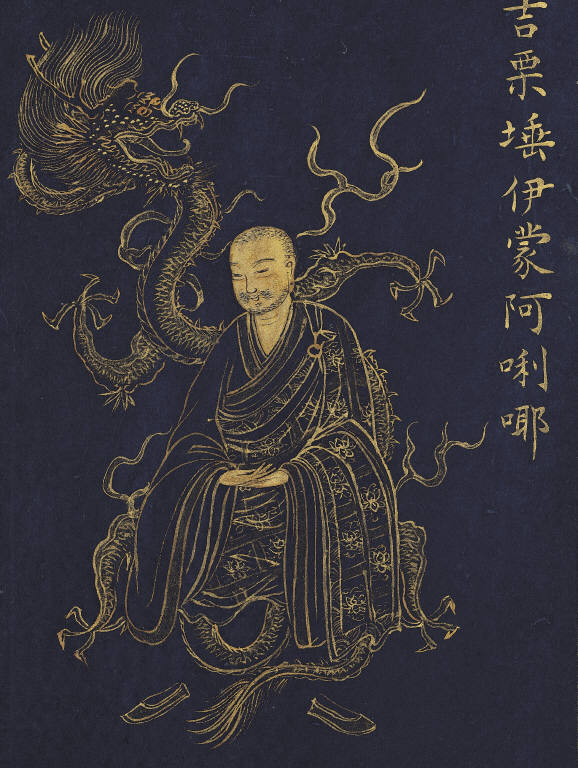 吉栗埵伊蒙阿唎㖿